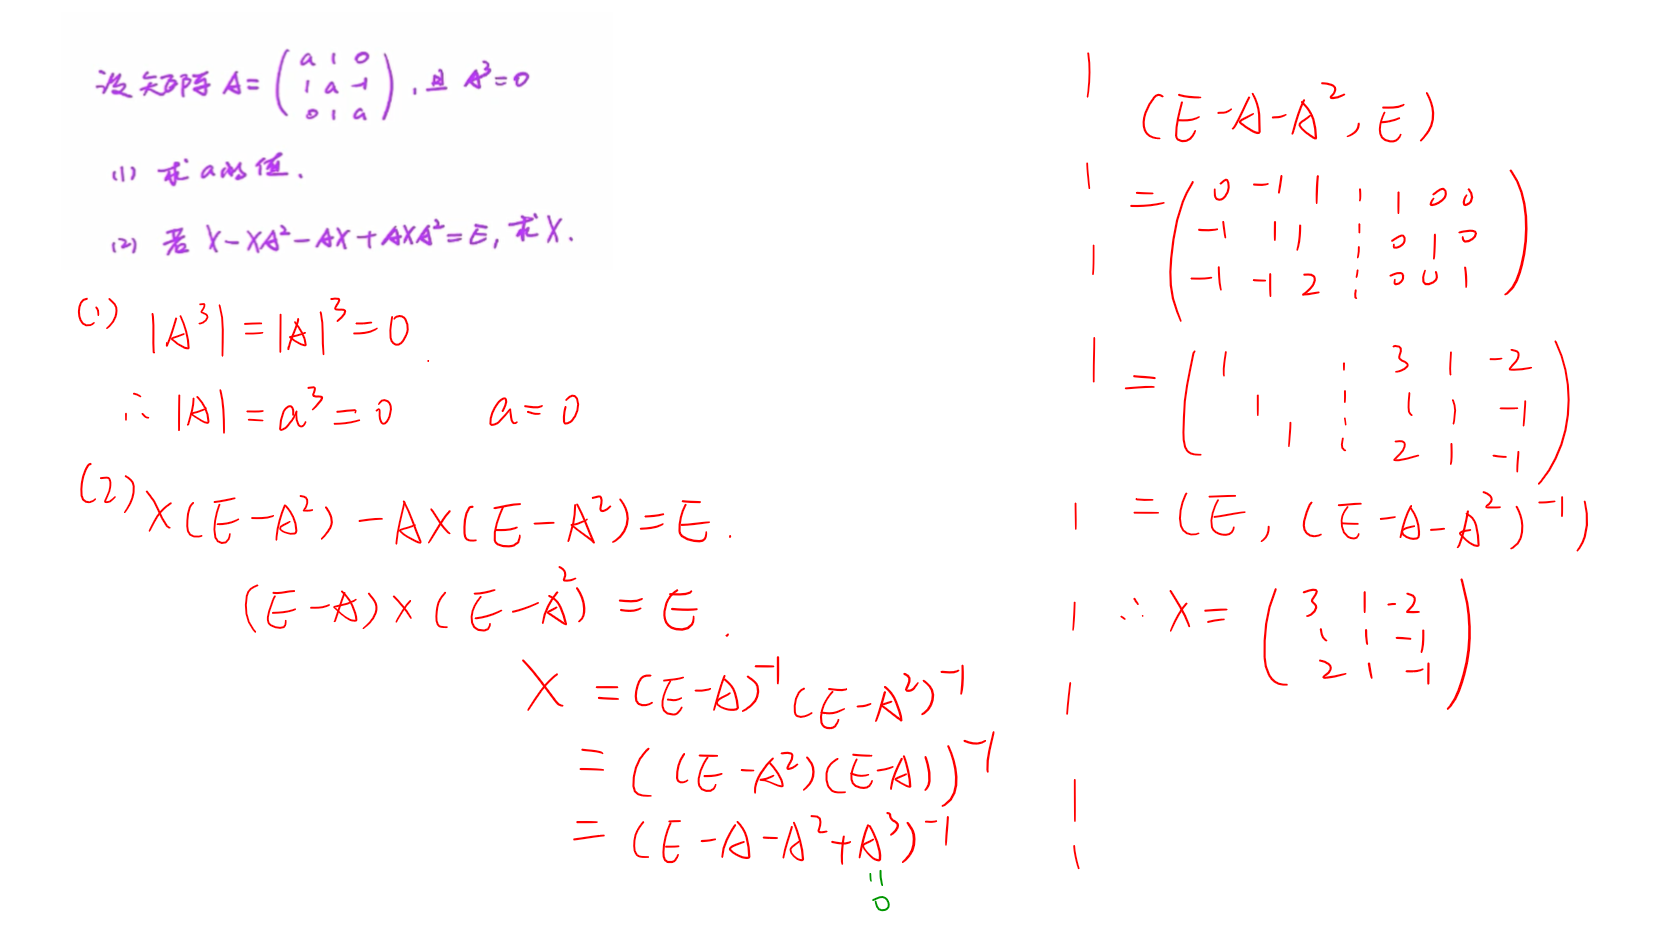 设矩阵 A = ( a 1 0
1 a -1
0 1 a ) , 且 A³ = 0
(1) 求 a 的值.
(2) 若 X - XA² - AX + AXA² = E, 求 X.
(1) |A³| = |A|³ = 0.
∴ |A| = a³ = 0 a = 0
(2) X(E - A²) - AX(E - A²) = E.
(E - A)X(E - A²) = E.
X = (E - A)⁻¹(E - A²)⁻¹
= ((E - A²)(E - A))⁻¹
= (E - A - A² + A³)⁻¹
=
0
(E - A - A², E)
= ( 0 -1 1 ¦ 1 0 0
-1 1 1 ¦ 0 1 0
-1 -1 2 ¦ 0 0 1 )
= ( 1 ¦ 3 1 -2
1 ¦ 1 1 -1
1 ¦ 2 1 -1 )
= (E, (E - A - A²)⁻¹)
∴ X = ( 3 1 -2
1 1 -1
2 1 -1 )